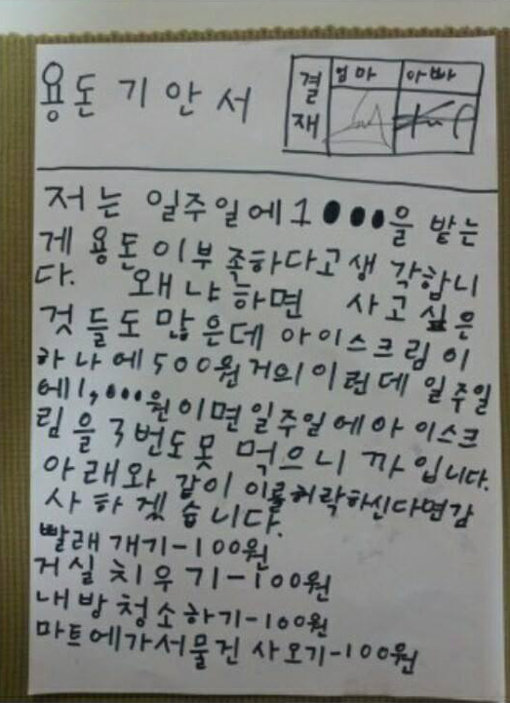 용돈 기안서
결재
엄마 아빠
저는 일주일에 1000을 받는
게 용돈이 부족하다고 생각합니
다. 왜냐하면 사고싶은
것들도 많은데 아이스크림이
하나에 500원 거의이런데 일주일
에 1,000원이면 일주일에 아이스크
림을 3번도 못 먹으니까입니다.
아래와 같이 이를 허락하신다면 감
사하겠습니다.
빨래개기-100원
거실 치우기-100원
내방청소하기-100원
마트에가서물건 사오기-100원